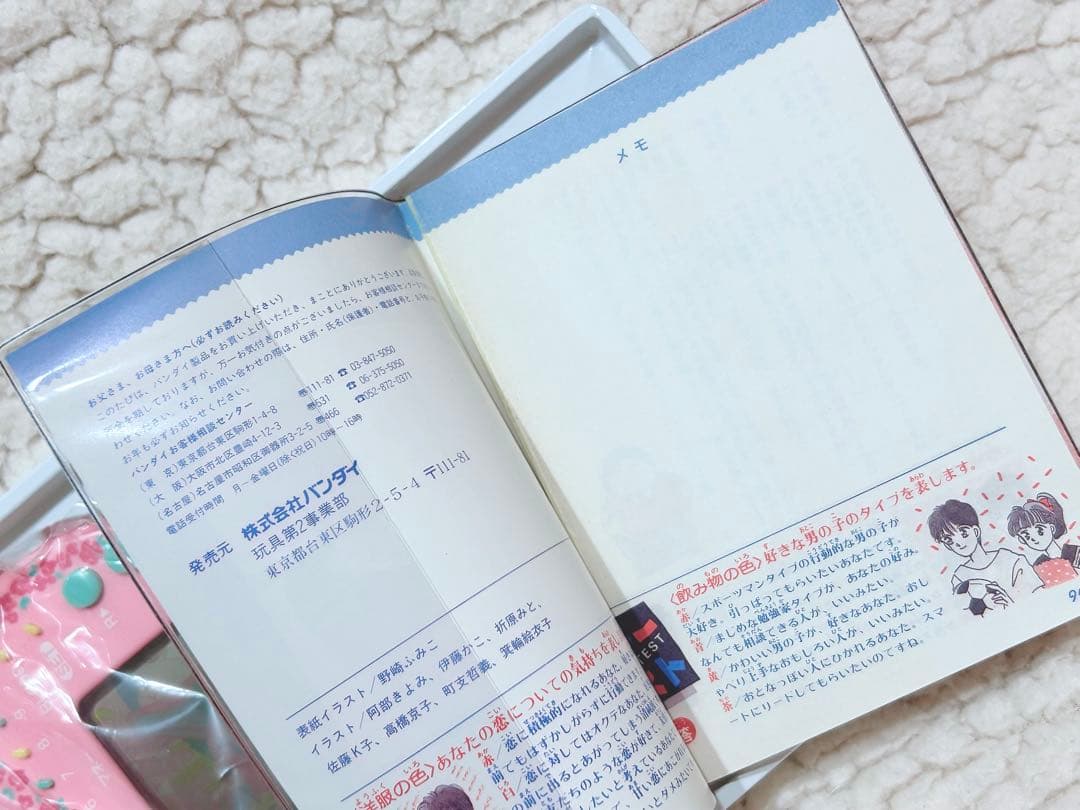 お父さま、お母さま方へ(必ずお読みください)
このたびは、バンダイ製品をお買い上げいただき、まことにありがとうございます。
万全を期しておりますが、万一お気付きの点がございましたら、お客様相談センターまで
わせください。なお、お問い合わせの際は、住所・氏名(保護者)・電話番号と、お子
お年も必ずお知らせください。
バンダイお客様相談センター
(東 京)東京都台東区駒形1-4-8 〒111-81 ☎03-847-5050
(大 阪)大阪市北区豊崎4-12-3 〒531 ☎06-375-5050
(名古屋)名古屋市昭和区御器所3-2-5 〒466 ☎052-872-0371
電話受付時間 月~金曜日(除く祝日)10時~16時
発売元 株式会社バンダイ
玩具第2事業部
東京都台東区駒形2-5-4 〒111-81
表紙イラスト/野崎ふみこ
イラスト/阿部きよみ、伊藤かこ、折原みと、
佐藤K子、高橋京子、町支哲義、箕輪絵衣子
洋服の色〉あなたの恋についての気持ちを表し
赤/恋に積極的になれるあなた。
前でもはずかしがらずに行動でき
青/恋に対してはオクテなあなた。
メモ
〈飲み物の色〉好きな男の子のタイプを表します。
赤/スポーツマンタイプの行動的な男の子が
大好き。引っぱってもらいたいあなたです。
青/まじめな勉強家タイプが、あなたの好み。
なんでも相談できる人が、いいみたい。
黄/かわいい男の子が、好きなあなた。おし
ゃべり上手なおもしろい人が、いいみたい。
茶/おとなっぽい人にひかれるあなた。スマ
ートにリードしてもらいたいのですね。